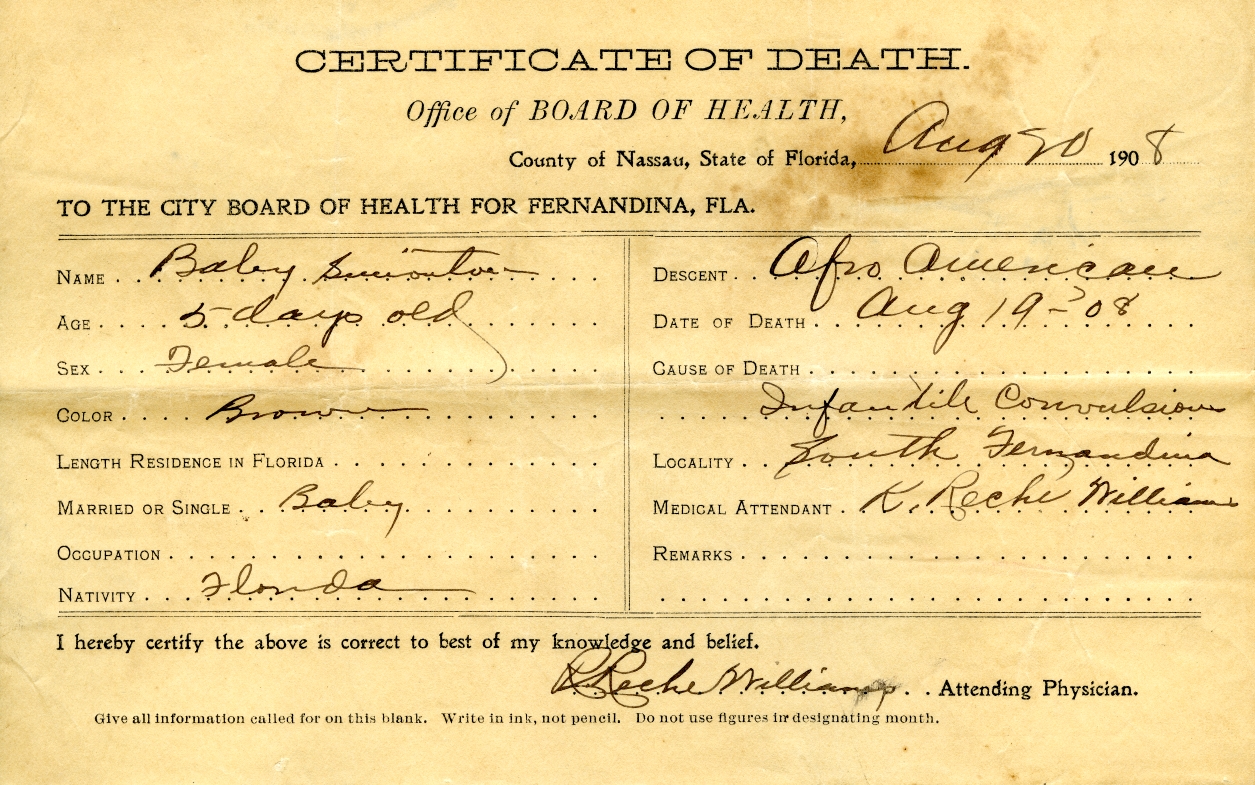 CERTIFICATE OF DEATH.
Office of BOARD OF HEALTH,
County of Nassau, State of Florida, Aug 20 1908
TO THE CITY BOARD OF HEALTH FOR FERNANDINA, FLA.
NAME Baby
AGE 5 days old
SEX Female
COLOR Brown
LENGTH RESIDENCE IN FLORIDA
MARRIED OR SINGLE Baby
OCCUPATION
NATIVITY Florida
DESCENT Afro American
DATE OF DEATH Aug 19 - 08
CAUSE OF DEATH
Infantile Convulsions
LOCALITY South Fernandina
MEDICAL ATTENDANT K. Reché Williams
REMARKS
I hereby certify the above is correct to best of my knowledge and belief.
Reche Williams Attending Physician.
Give all information called for on this blank. Write in ink, not pencil. Do not use figures in designating month.